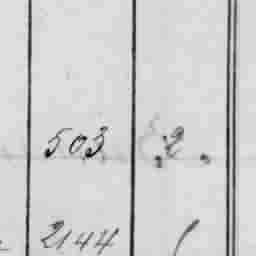 503 .2.
2144 1